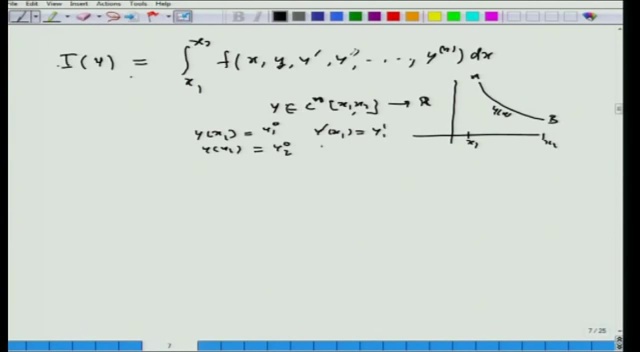 File Edit View Insert Actions Tools Help
I(y) = ∫_{x_1}^{x_2} f(x, y, y', y'', ...., y^{(n)}) dx
y ∈ C^n [x_1, x_2] → R
A
y(x)
B
x_1
x_2
y(x_1) = y_1^0 y'(x_1) = y_1'
y(x_2) = y_2^0
7 / 25
7